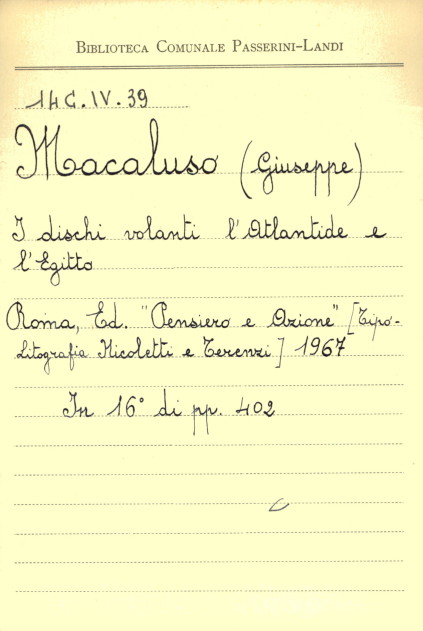 BIBLIOTECA COMUNALE PASSERINI-LANDI
14C.IV.39
Macaluso (Giuseppe)
I dischi volanti l'Atlantide e
l'Egitto
Roma, Ed. "Pensiero e Azione" [Tipo-
Litografia Nicoletti e Terenzi] 1967
In 16° di pp. 402